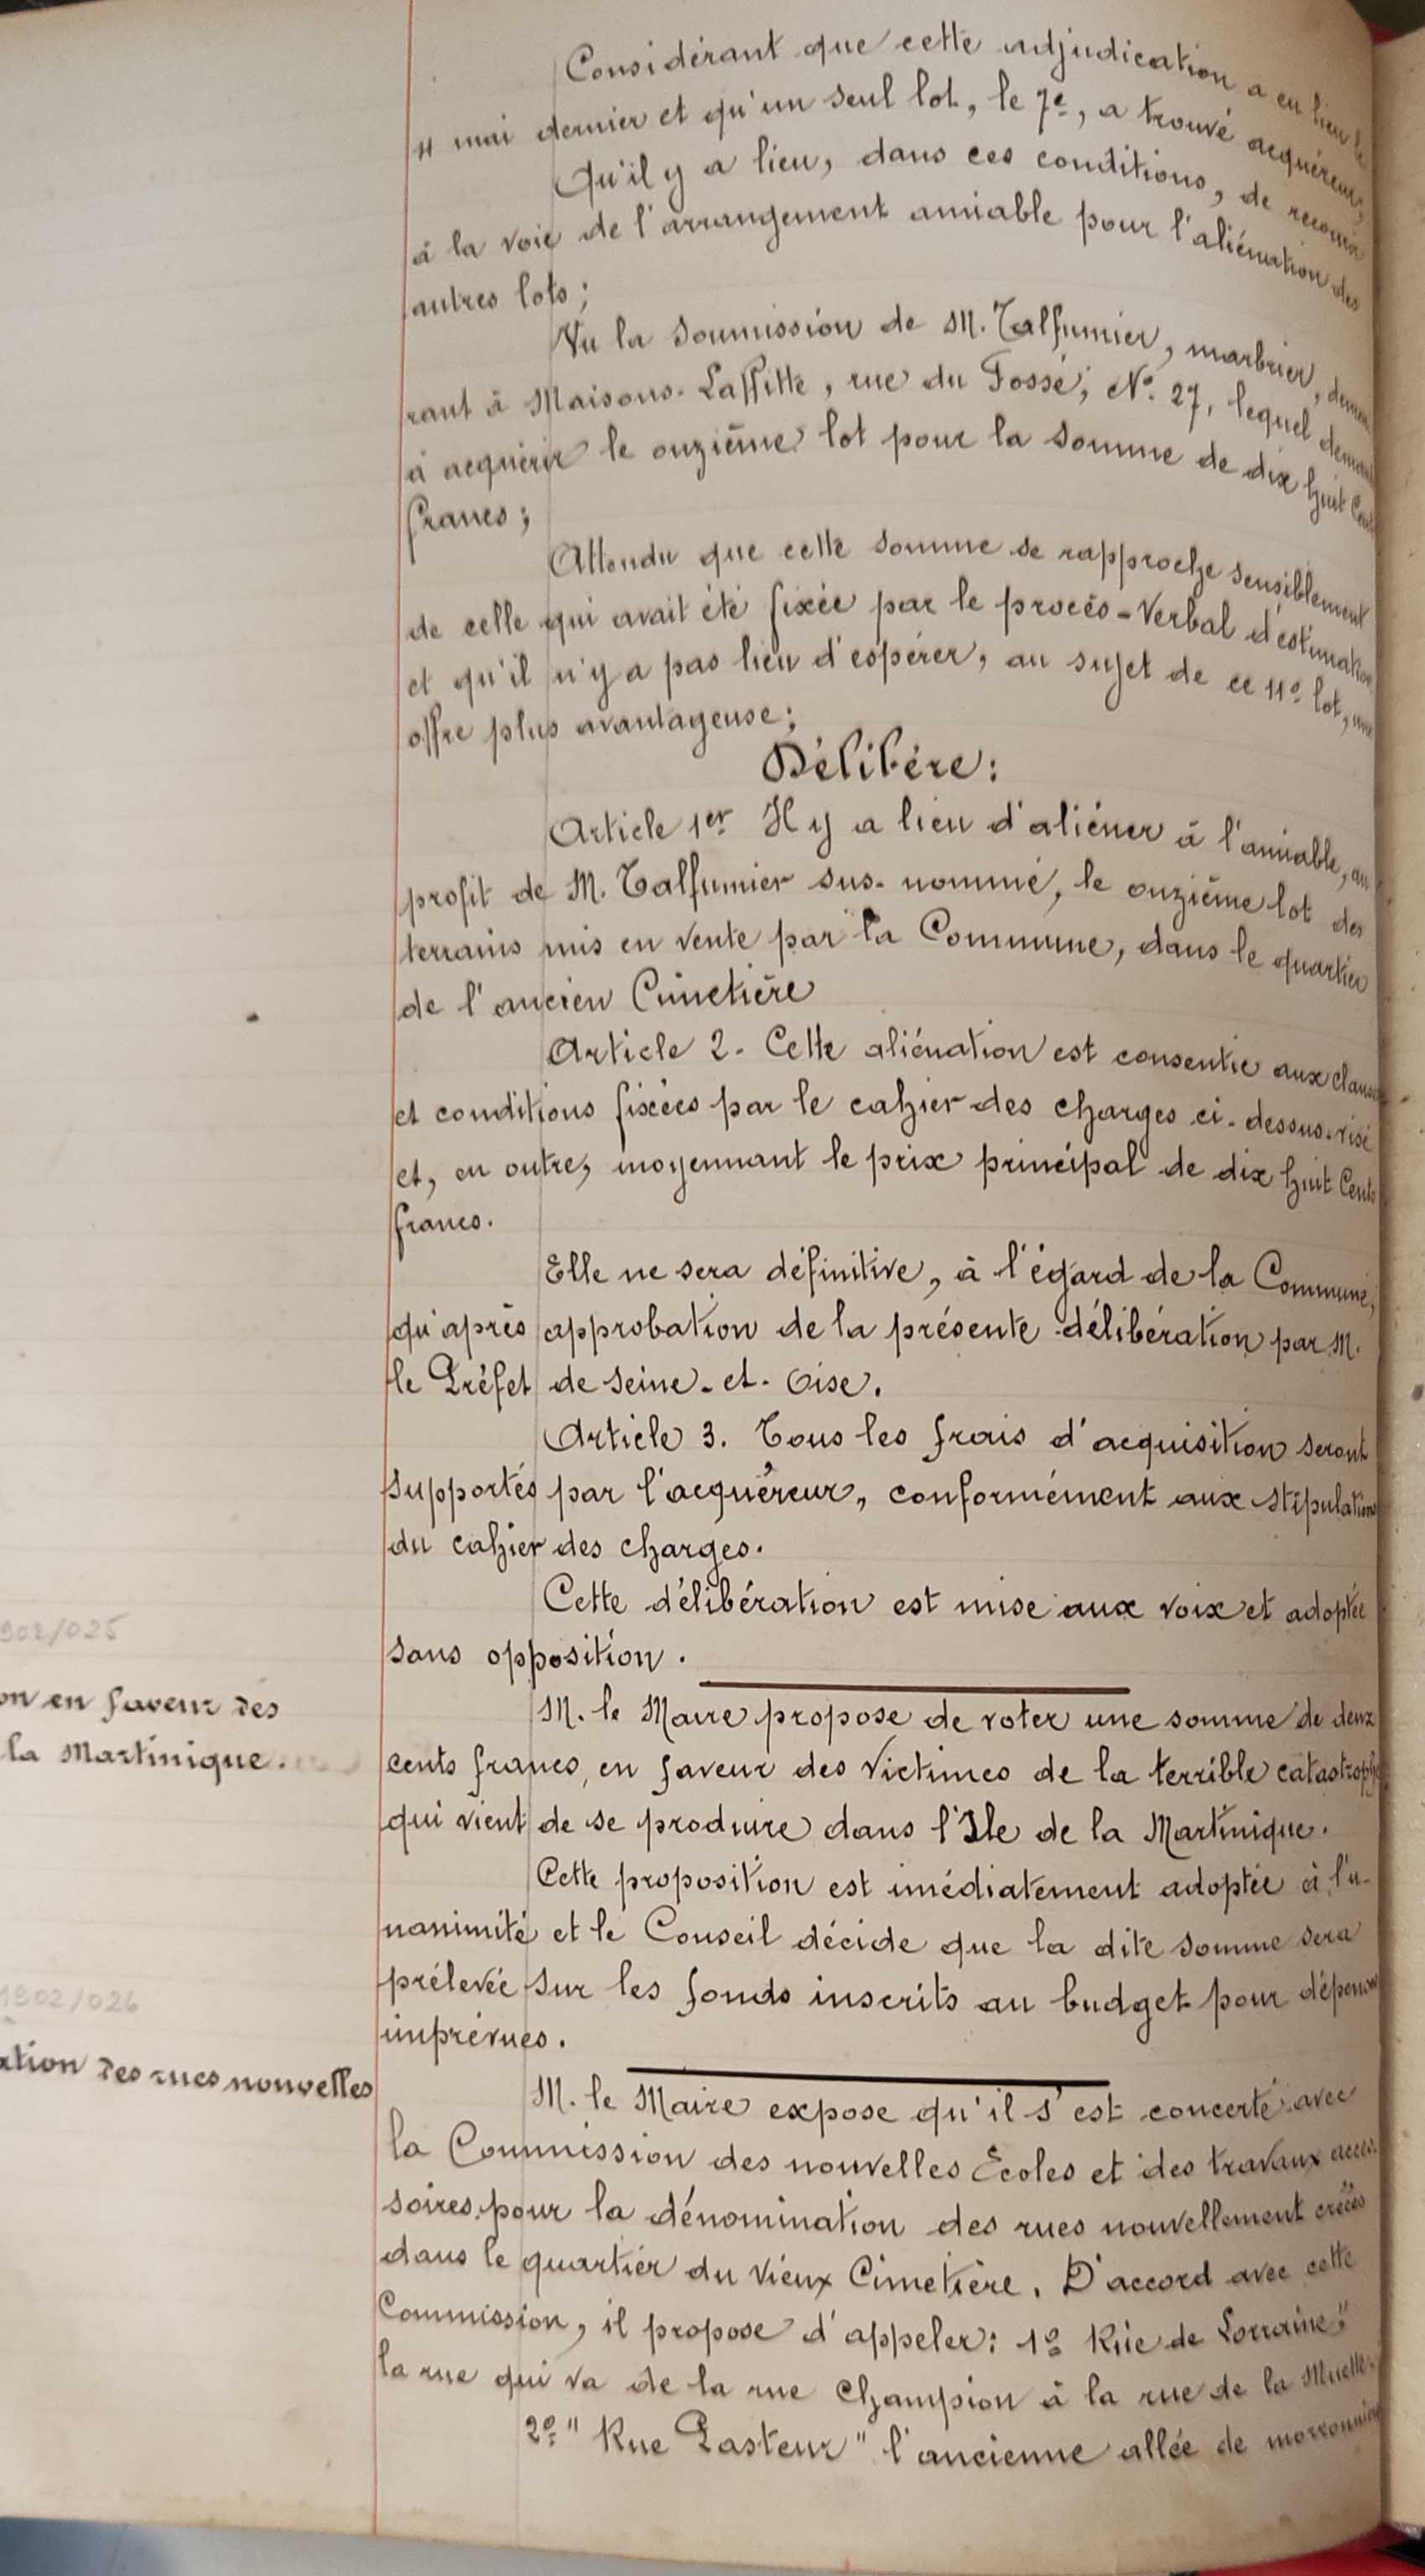 Considérant que cette adjudication a eu lieu le
11 mai dernier et qu'un seul lot, le 7e, a trouvé acquéreur,
Qu'il y a lieu, dans ces conditions, de recourir
à la voie de l'arrangement amiable pour l'aliénation des
autres lots;
Vu la soumission de M. Talfumier, marbrier, demeu
rant à Maisons-Laffitte, rue du Fossé, No. 27, lequel demande
à acquérir le onzième lot pour la somme de dix huit Cents
francs;
Attendu que cette somme se rapproche sensiblement
de celle qui avait été fixée par le procès-Verbal d'estimation
et qu'il n'y a pas lieu d'espérer, au sujet de ce 11e lot, une
offre plus avantageuse;
Délibère:
Article 1er Il y a lieu d'aliéner à l'amiable, au
profit de M. Talfumier sus-nommé, le onzième lot des
terrains mis en vente par la Commune, dans le quartier
de l'ancien Cimetière
Article 2. Cette aliénation est consentie aux clauses
et conditions fixées par le cahier des charges ci-dessus visé
et, en outre, moyennant le prix principal de dix huit Cents
francs.
Elle ne sera définitive, à l'égard de la Commune,
qu'après approbation de la présente délibération par M.
le Préfet de Seine-et-Oise.
Article 3. Tous les frais d'acquisition seront
supportés par l'acquéreur, conformément aux stipulations
du cahier des charges.
Cette délibération est mise aux voix et adoptée
sans opposition.
902/025
on en faveur des
la Martinique.
M. le Maire propose de voter une somme de deux
cents francs, en faveur des Victimes de la terrible catastrophe
qui vient de se produire dans l'Ile de la Martinique.
Cette proposition est imédiatement adoptée à l'u-
nanimité et le Conseil décide que la dite somme sera
prélevée sur les fonds inscrits au budget pour dépenses
imprévues.
1902/026
ation des rues nouvelles
M. le Maire expose qu'il s'est concerté avec
la Commission des nouvelles Ecoles et des travaux acces-
soires, pour la dénomination des rues nouvellement créées
dans le quartier du Vieux Cimetière. D'accord avec cette
Commission, il propose d'appeler: 1o Rue de Lorraine"
la rue qui va de la rue Champion à la rue de la Muette.
2o "Rue Pasteur" l'ancienne allée de marronniers